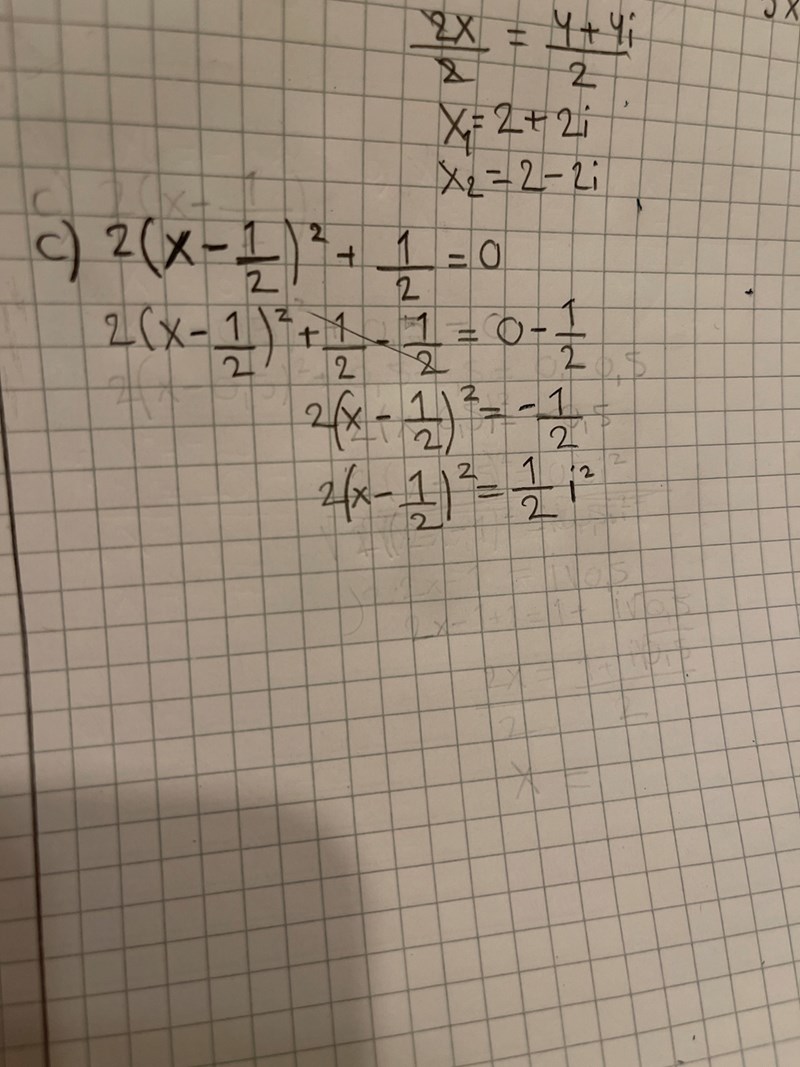 2x/2 = 4+4i/2
x₁=2+2i
x₂=2-2i
c) 2(x-1/2)²+1/2=0
2(x-1/2)²+1/2-1/2=0-1/2
2(x-1/2)²=-1/2
2(x-1/2)²=1/2 i²
x =